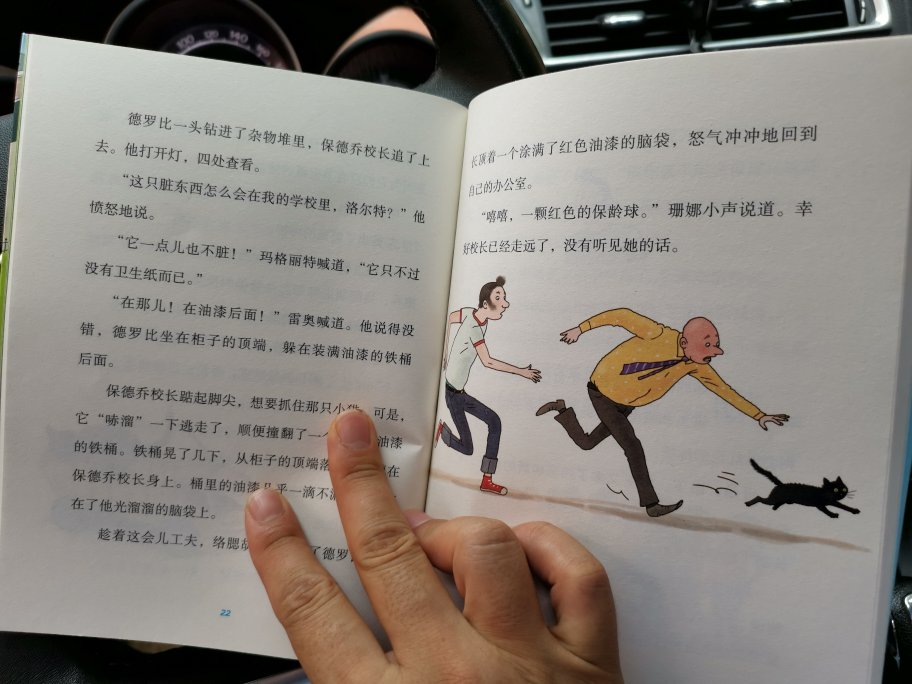 德罗比一头钻进了杂物堆里，保德乔校长追了上
去。他打开灯，四处查看。
“这只脏东西怎么会在我的学校里，洛尔特？”他
愤怒地说。
“它一点儿也不脏！”玛格丽特喊道，“它只不过
没有卫生纸而已。”
“在那儿！在油漆后面！”雷奥喊道。他说得没
错，德罗比坐在柜子的顶端，躲在装满油漆的铁桶
后面。
保德乔校长踮起脚尖，想要抓住那只小猫。可是，
它“哧溜”一下逃走了，顺便撞翻了一 油漆
的铁桶。铁桶晃了几下，从柜子的顶端落 在
保德乔校长身上。桶里的油漆几乎一滴不
在了他光溜溜的脑袋上。
趁着这会儿工夫，络腮 了德罗
22
长顶着一个涂满了红色油漆的脑袋，怒气冲冲地回到
自己的办公室。
“嘻嘻，一颗红色的保龄球。”珊娜小声说道。幸
好校长已经走远了，没有听见她的话。
100 120 140 160